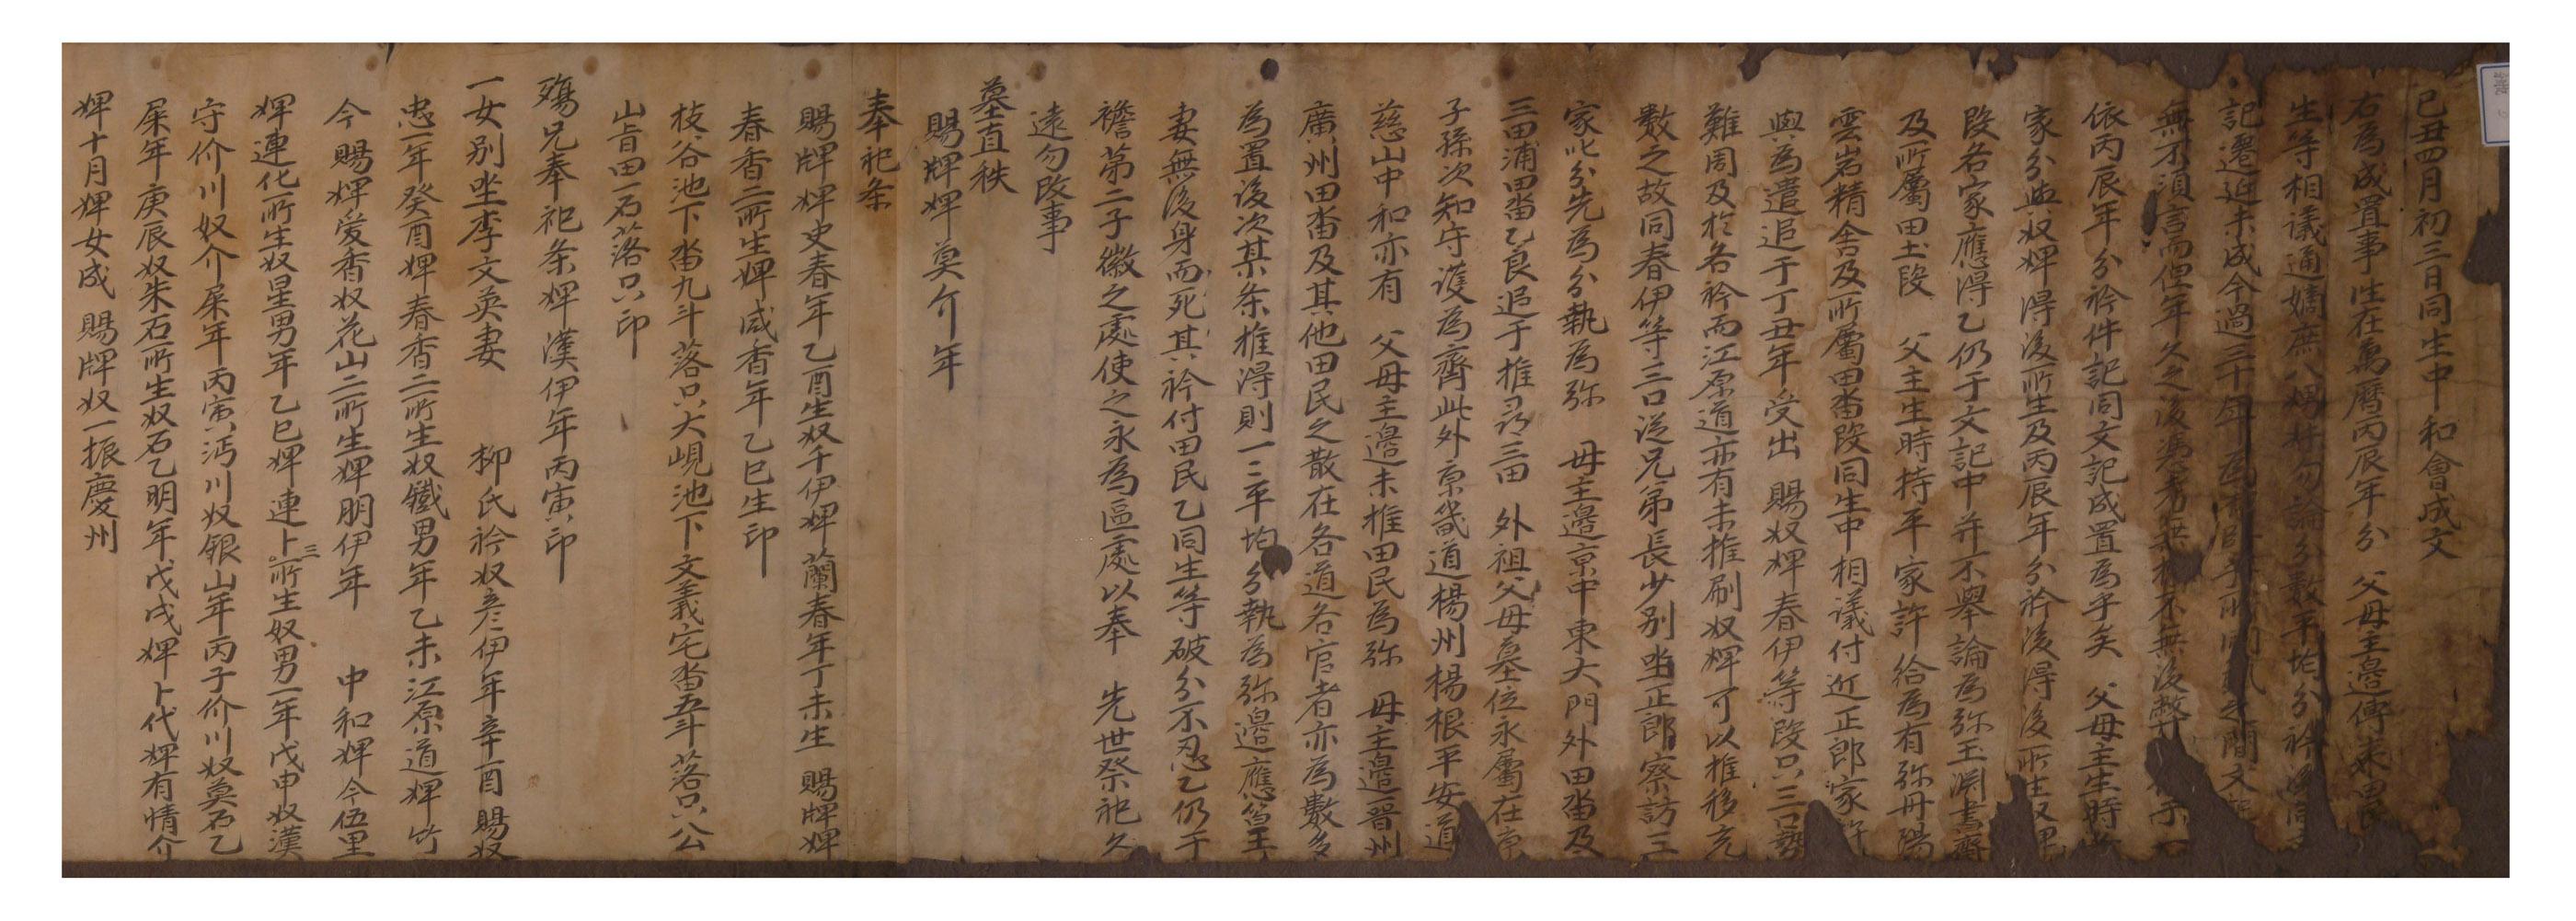 己丑四月初三日同生中和會成文
右爲成置事段在萬曆丙辰年分 父母主邊傳來田民
生等相議適嫡庶八娚妹勿論分數平均分衿
記遷延未成今過三十年 之間文記
無不須言而但年久之後憑考無 不無後弊
依丙辰年分衿件記同文記成置爲乎矣 父母主生時
家分與奴婢得後所生及丙辰年分衿後得後所生奴婢
段各家應得乙仍于文記中并不擧論爲旀玉淵書齋
及所屬田土段 父主生時持平家許給爲有旀丹陽
雲岩精舍及所屬田畓段同生中相議付近正郎家許
與爲遣追于丁丑年受出 賜奴婢春伊等段只三口勢
難周及於各衿而江原道亦有未推刷奴婢可以推移充
數之故同春伊等三口從兄弟長少別坐正郎察訪三
家此分先爲分執爲旀 母主邊京中東大門外田畓及
三田浦田畓乙良追于推尋三田 外祖父母墓位永屬在京
子孫次知守護爲齊此外京畿道楊州楊根平安道
慈山中和亦有 父母主邊未推田民爲旀 母主邊晋州
廣州田畓及其他田民之散在各道各官者亦爲數多
爲置後次某条推得則一一平均分執爲旀邊應箕
妻無後身而死其衿付田民乙同生等破分不忍乙仍于
襜第二子徽之處使之永爲區處以奉 先世祭祀久
遠勿改事
墓直秩
賜牌婢莫介年
奉祀条
賜牌婢史春年乙酉生奴千伊婢蘭春年丁未生 賜牌婢
春香二所生婢咸香年乙巳生印
枝谷池下畓九斗落只大峴池下文義宅畓五斗落只公
山旨田一石落只印
殤兄奉祀条婢漢伊年丙寅印
一女別坐李文英妻 柳氏衿奴彦伊年辛酉 賜奴
忠一年癸酉婢春香二所生奴鐵男年乙未江原道婢竹
今 賜婢爱香奴花山二所生婢明伊年 中和婢今伍里
婢連化所生奴星男年乙巳婢連卜三所生奴男一年戊申奴漢
守价川奴介屎年丙寅沔川奴銀山年丙子价川奴莫石乙
屎年庚辰奴朱石所生奴石乙明年戊戌婢卜代婢有情介
婢十月婢女成 賜牌奴一振慶州